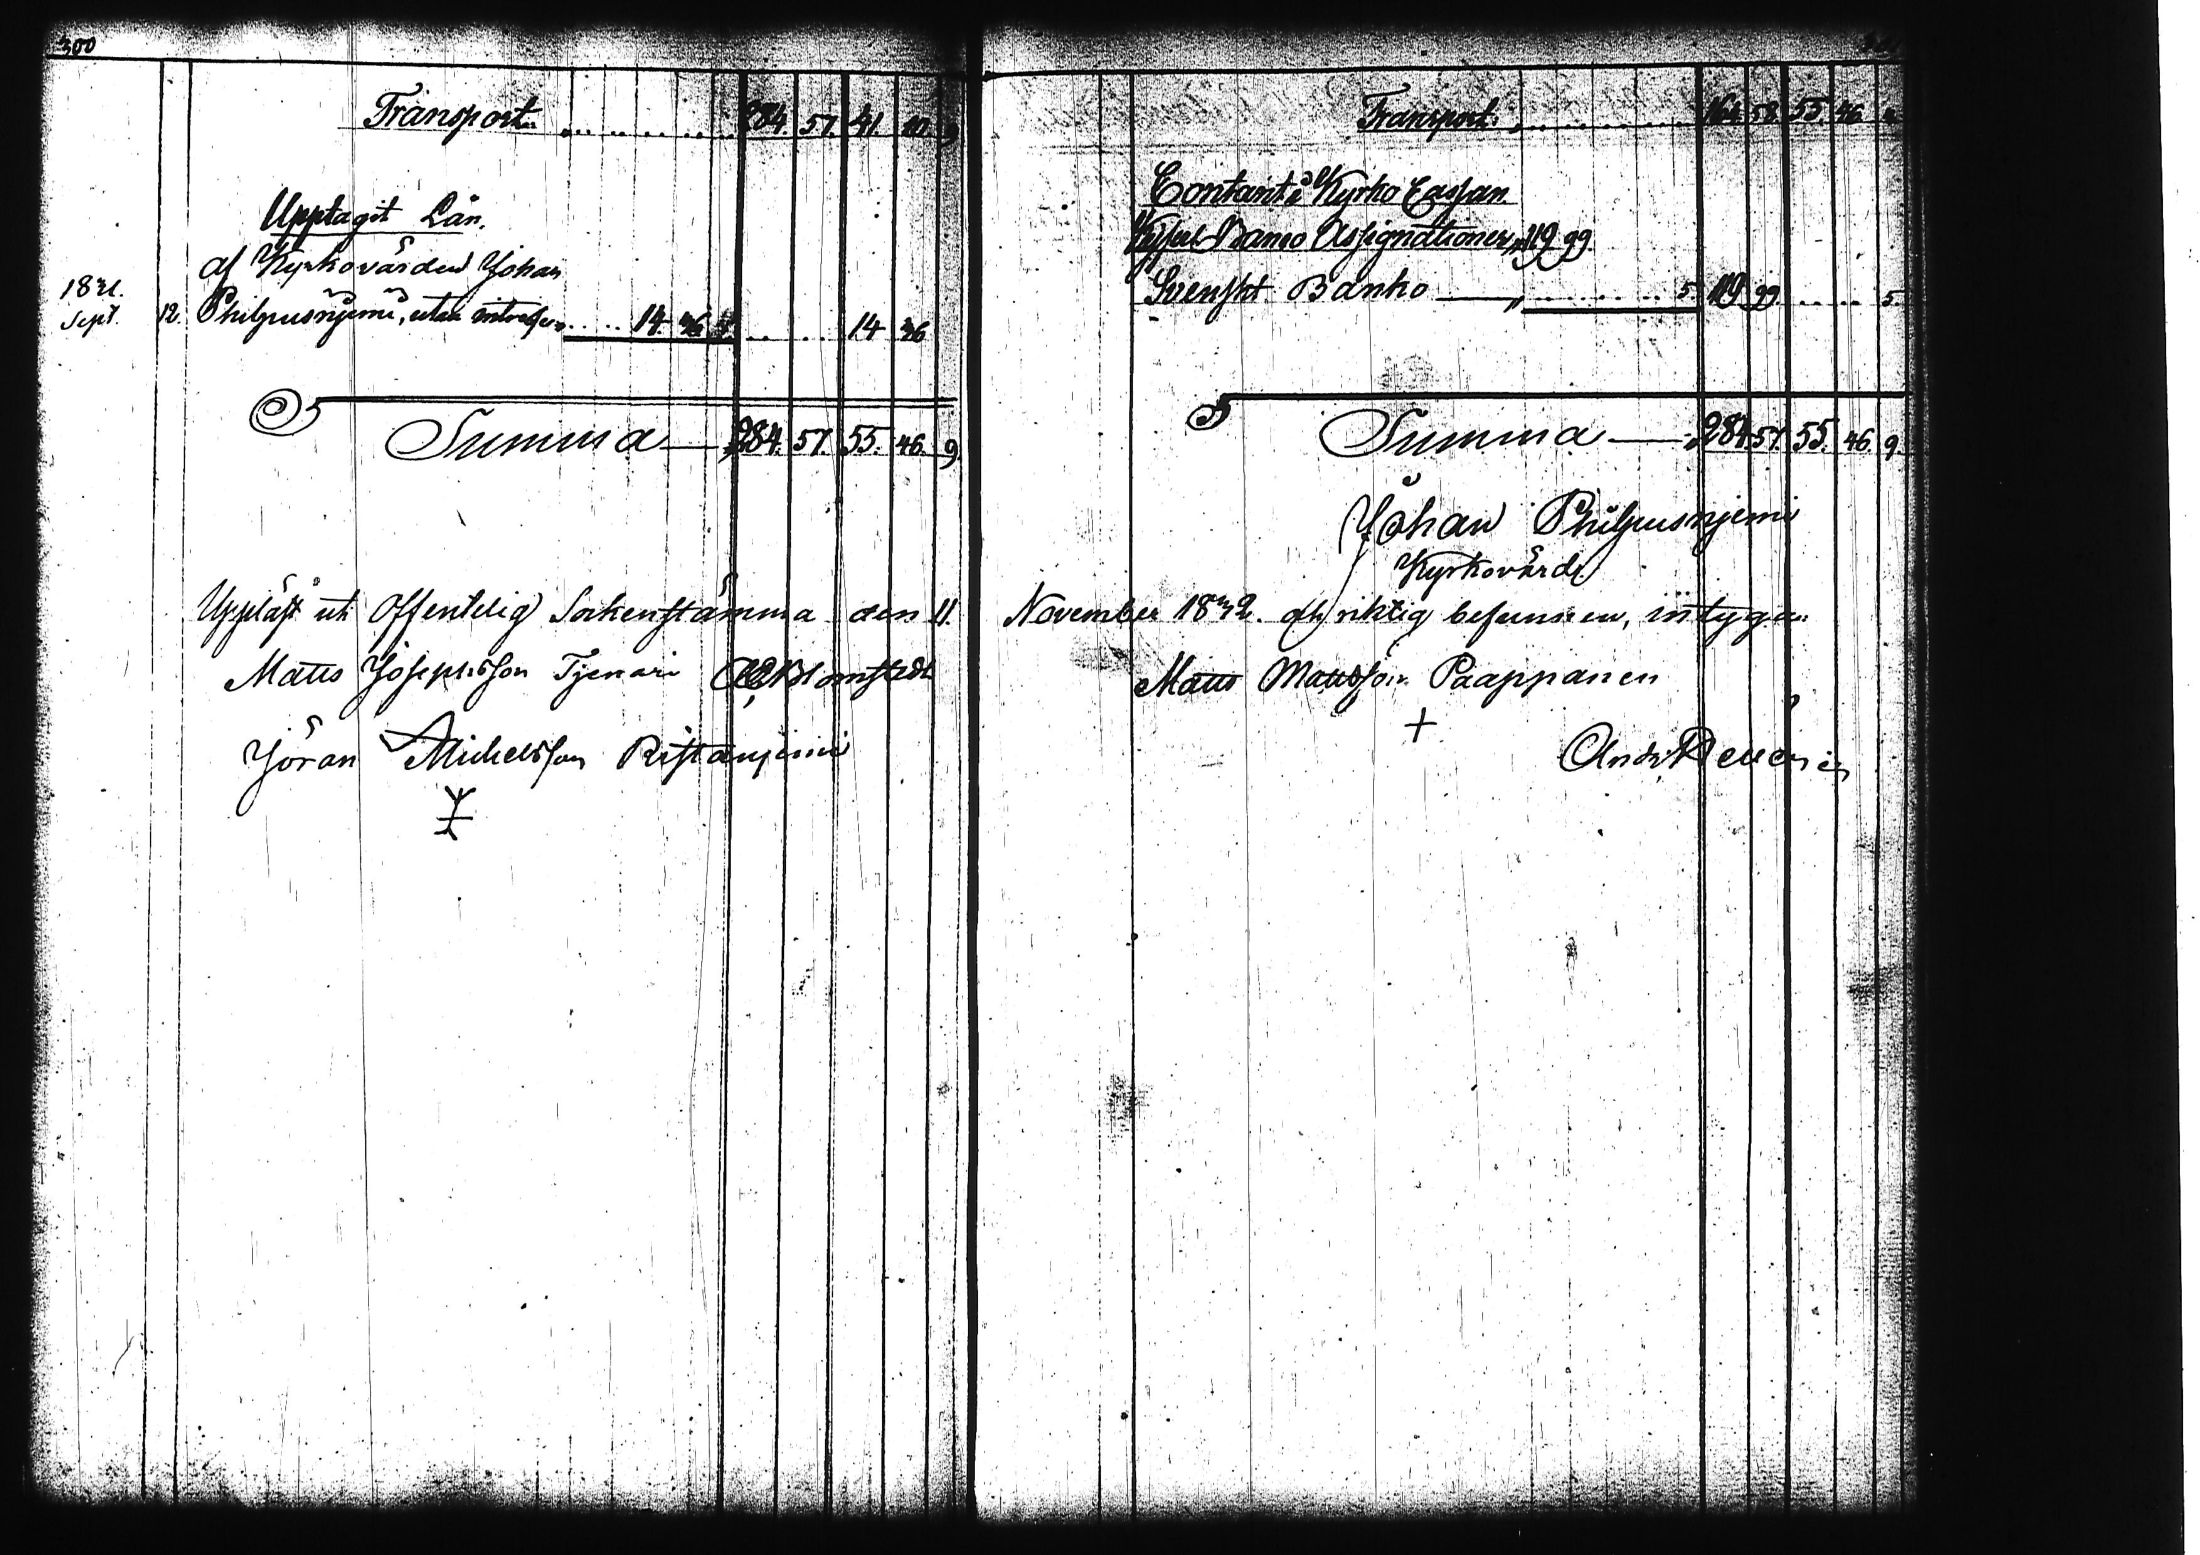 300
Transport 284. 57. 41. 10. 9
Upptagit Lån.
af Kyrkovärden Johan
1831.
Sept. 12. Philpusnjemi, utan intresse 14 36 14 36
Summa 284. 57. 55. 46. 9.
Uppläst uti Offentelig Sockenstämma den 11.
Matts Josephsson Tjenari Blomstedt
Jöran Michelsson Ristanjemi
Transport 164. 58. 55. 46.
Contant i Kyrko Cassan
Banco Assignationer 119 99
Svenskt Banko 5 119 99 5
Summa 284. 57. 55. 46. 9.
Johan Philpusnjemi
Kyrkovärd.
November 1832. och riktig befunnen, intyga
Matts Mattsson Paappanen
+